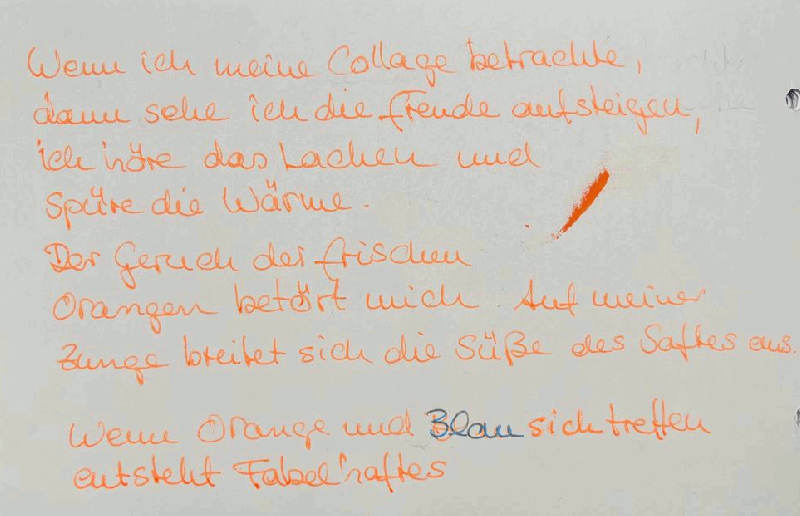 Wenn ich meine Collage betrachte,
dann sehe ich die Freude aufsteigen,
ich höre das Lachen und
spüre die Wärme.
Der Geruch der frischen
Orangen betört mich. Auf meiner
Zunge breitet sich die Süße des Saftes aus.
Wenn Orange und Blau sich treffen
entsteht Fabelhaftes